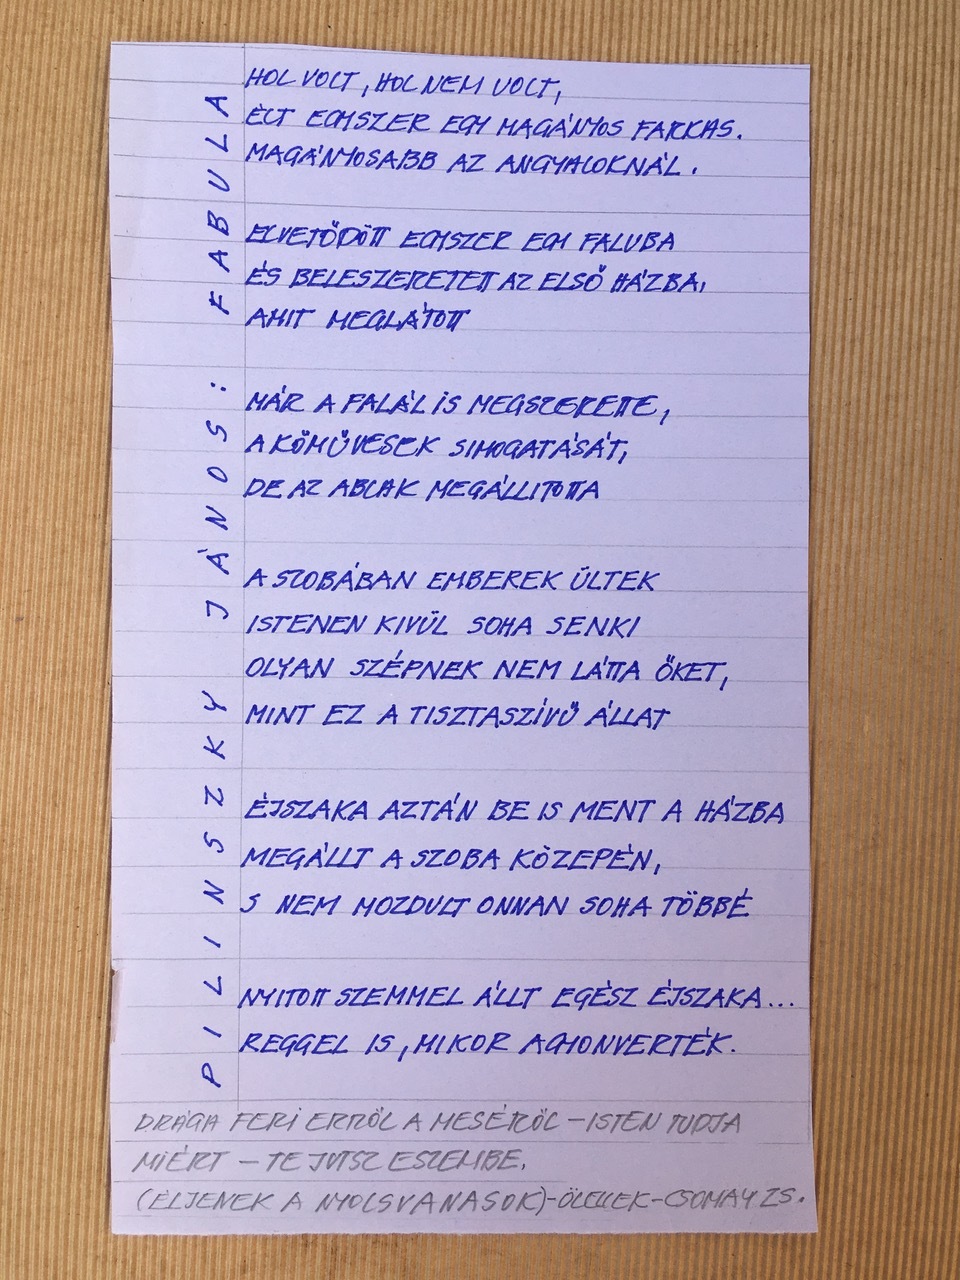 PILINSZKY JÁNOS: FABULA
HOL VOLT, HOL NEM VOLT,
ÉLT EGYSZER EGY MAGÁNYOS FARKAS.
MAGÁNYOSABB AZ ANGYALOKNÁL.
ELVETŐDÖTT EGYSZER EGY FALUBA
ÉS BELESZERETETT AZ ELSŐ HÁZBA,
AMIT MEGLÁTOTT
MÁR A FALÁL IS MEGSZERETTE,
A KŐMŰVESEK SIMOGATÁSÁT,
DE AZ ABLAK MEGÁLLITOTTA
A SZOBÁBAN EMBEREK ÜLTEK
ISTENEN KIVÜL SOHA SENKI
OLYAN SZÉPNEK NEM LÁTTA ŐKET,
MINT EZ A TISZTASZÍVŰ ÁLLAT
ÉJSZAKA AZTÁN BE IS MENT A HÁZBA
MEGÁLLT A SZOBA KÖZEPÉN,
S NEM MOZDULT ONNAN SOHA TÖBBÉ
NYITOTT SZEMMEL ÁLLT EGÉSZ ÉJSZAKA...
REGGEL IS, MIKOR AGYONVERTÉK.
DRÁGA FERI ERRŐL A MESÉRŐL – ISTEN TUDJA
MIÉRT – TE JUTSZ ESZEMBE.
(ÉLJENEK A NYOLSVANASOK) – ÖLELLEK – CSOMAY ZS.